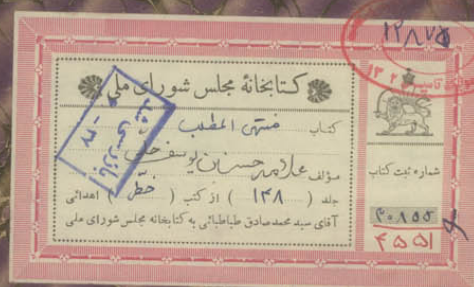 ۱۳۸۷۵
کتابخانهٔ مجلس شورای ملی
کتاب منتهی المطلب
مؤلف علامه حسن بن یوسف حلی
جلد ( ۱۴۸ ) از کتب ( خطی ) اهدائی
آقای سید محمد صادق طباطبائی به کتابخانه مجلس شورای ملی
بازرسی شد
۳۷ -
شماره ثبت کتاب
۴۰۸۵۵
۴۵۵۱